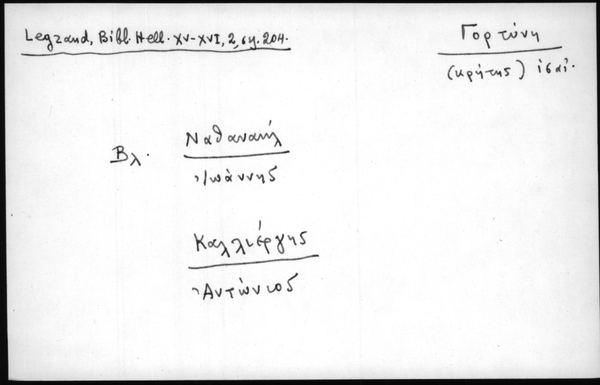 Legrand, Bibl. Hell. XV-XVI, 2, σελ. 204.
Γορτύνη
(Κρήτης) ις΄ αἰ.
Βλ. Ναθαναήλ
Ἰωάννης
Καλλιέργης
Ἀντώνιος